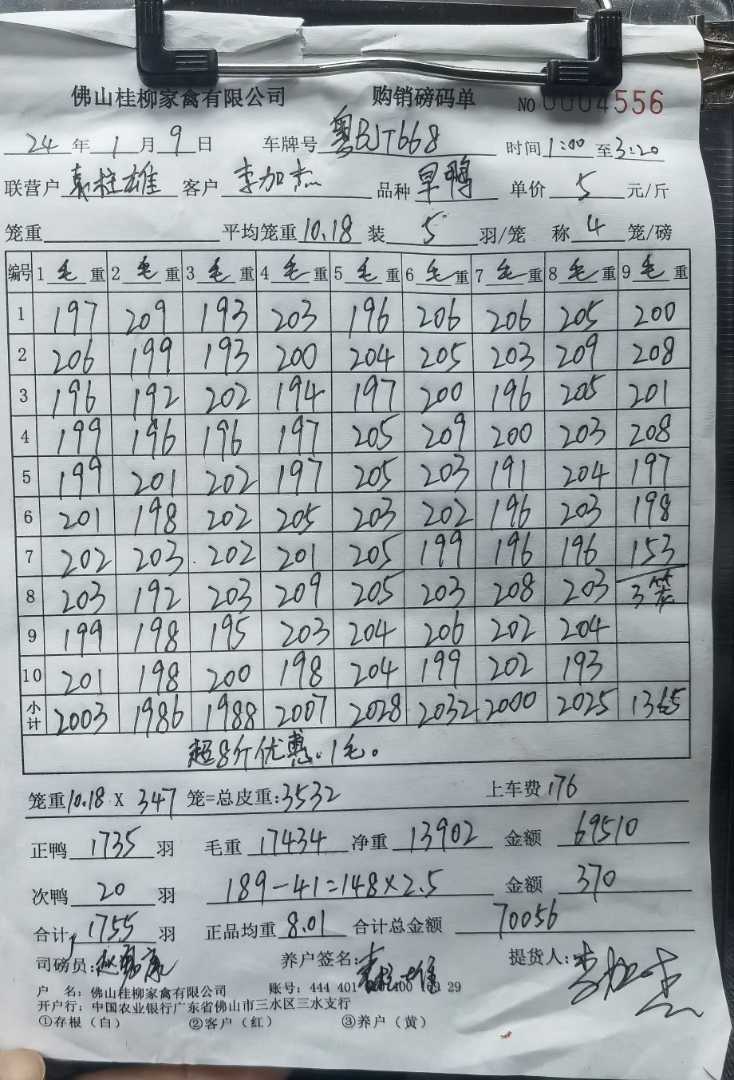 佛山桂柳家禽有限公司 购销磅码单 NO 0004556
24年1月9日 车牌号 粤BJT668 时间1:00至3:20
联营户 袁柱雄 客户 李加杰 品种 旱鸭 单价 5 元/斤
笼重 平均笼重10.18装 5 羽/笼 称 4 笼/磅
编号 1毛重 2毛重 3毛重 4毛重 5毛重 6毛重 7毛重 8毛重 9毛重
1 197 209 193 203 196 206 206 205 200
2 206 199 193 200 204 205 203 209 208
3 196 192 202 194 197 200 196 205 201
4 199 196 196 197 205 209 200 203 208
5 199 201 202 197 205 203 191 204 197
6 201 198 202 205 203 202 196 203 198
7 202 203 202 201 205 199 196 196 153
8 203 192 203 209 205 203 208 203 3笼
9 199 198 195 203 204 206 202 204
10 201 198 200 198 204 199 202 193
小计 2003 1986 1988 2007 2028 2032 2000 2025 1365
超8斤优惠.1毛。
笼重10.18 X 347 笼=总皮重:3532 上车费 176
正鸭 1735 羽 毛重 17434 净重 13902 金额 69510
次鸭 20 羽 189-41=148×2.5 金额 370
合计 1755 羽 正品均重 8.01 合计总金额 70056
司磅员: 养户签名:袁柱雄 提货人:李加杰
户 名: 佛山桂柳家禽有限公司 账号: 444 401 400 29
开户行: 中国农业银行广东省佛山市三水区三水支行
①存根(白) ②客户(红) ③养户(黄)